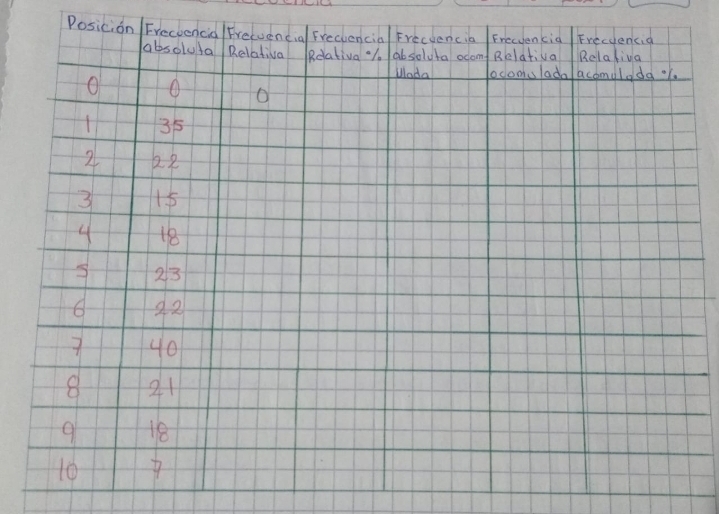 Posición Frecuencia Frecuencia Frecuencia Frecuencia Frecuencia Frecuencia
absoluta Relativa Relativa % absoluta acom- Relativa Relativa
ulada acomulada acomulada %
0 0 0
1 35
2 22
3 15
4 18
5 23
6 22
7 40
8 21
9 18
10 7